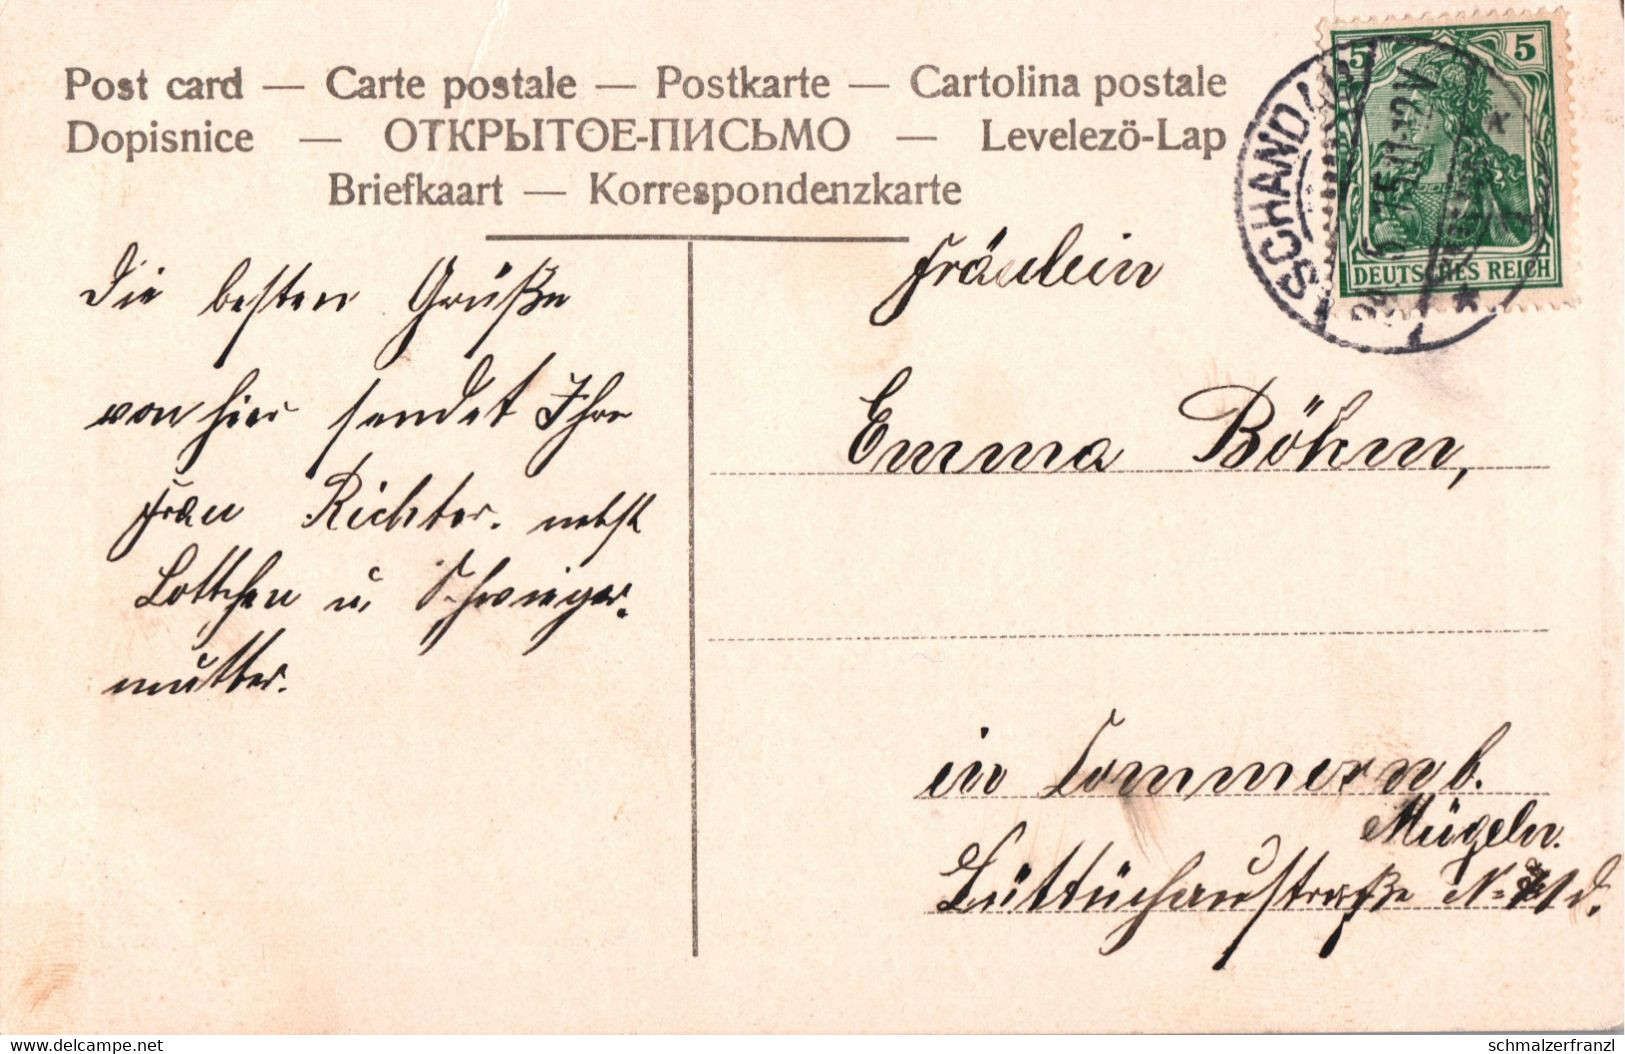 Post card — Carte postale — Postkarte — Cartolina postale
Dopisnice — ОТКРЫТОЕ-ПИСЬМО — Levelező-Lap
Briefkaart — Korrespondenzkarte
5 5
DEUTSCHES REICH
SCHANDAU
Die besten Grüße
von hier sendet Ihre
Frau Richter. nebst
Lottchen u. Schwieger-
mutter.
Fräulein
Emma Böhm,
in Dommern b.
Mügeln.
Lüttichaustraße No
delcampe.net
schmalzerfranzl